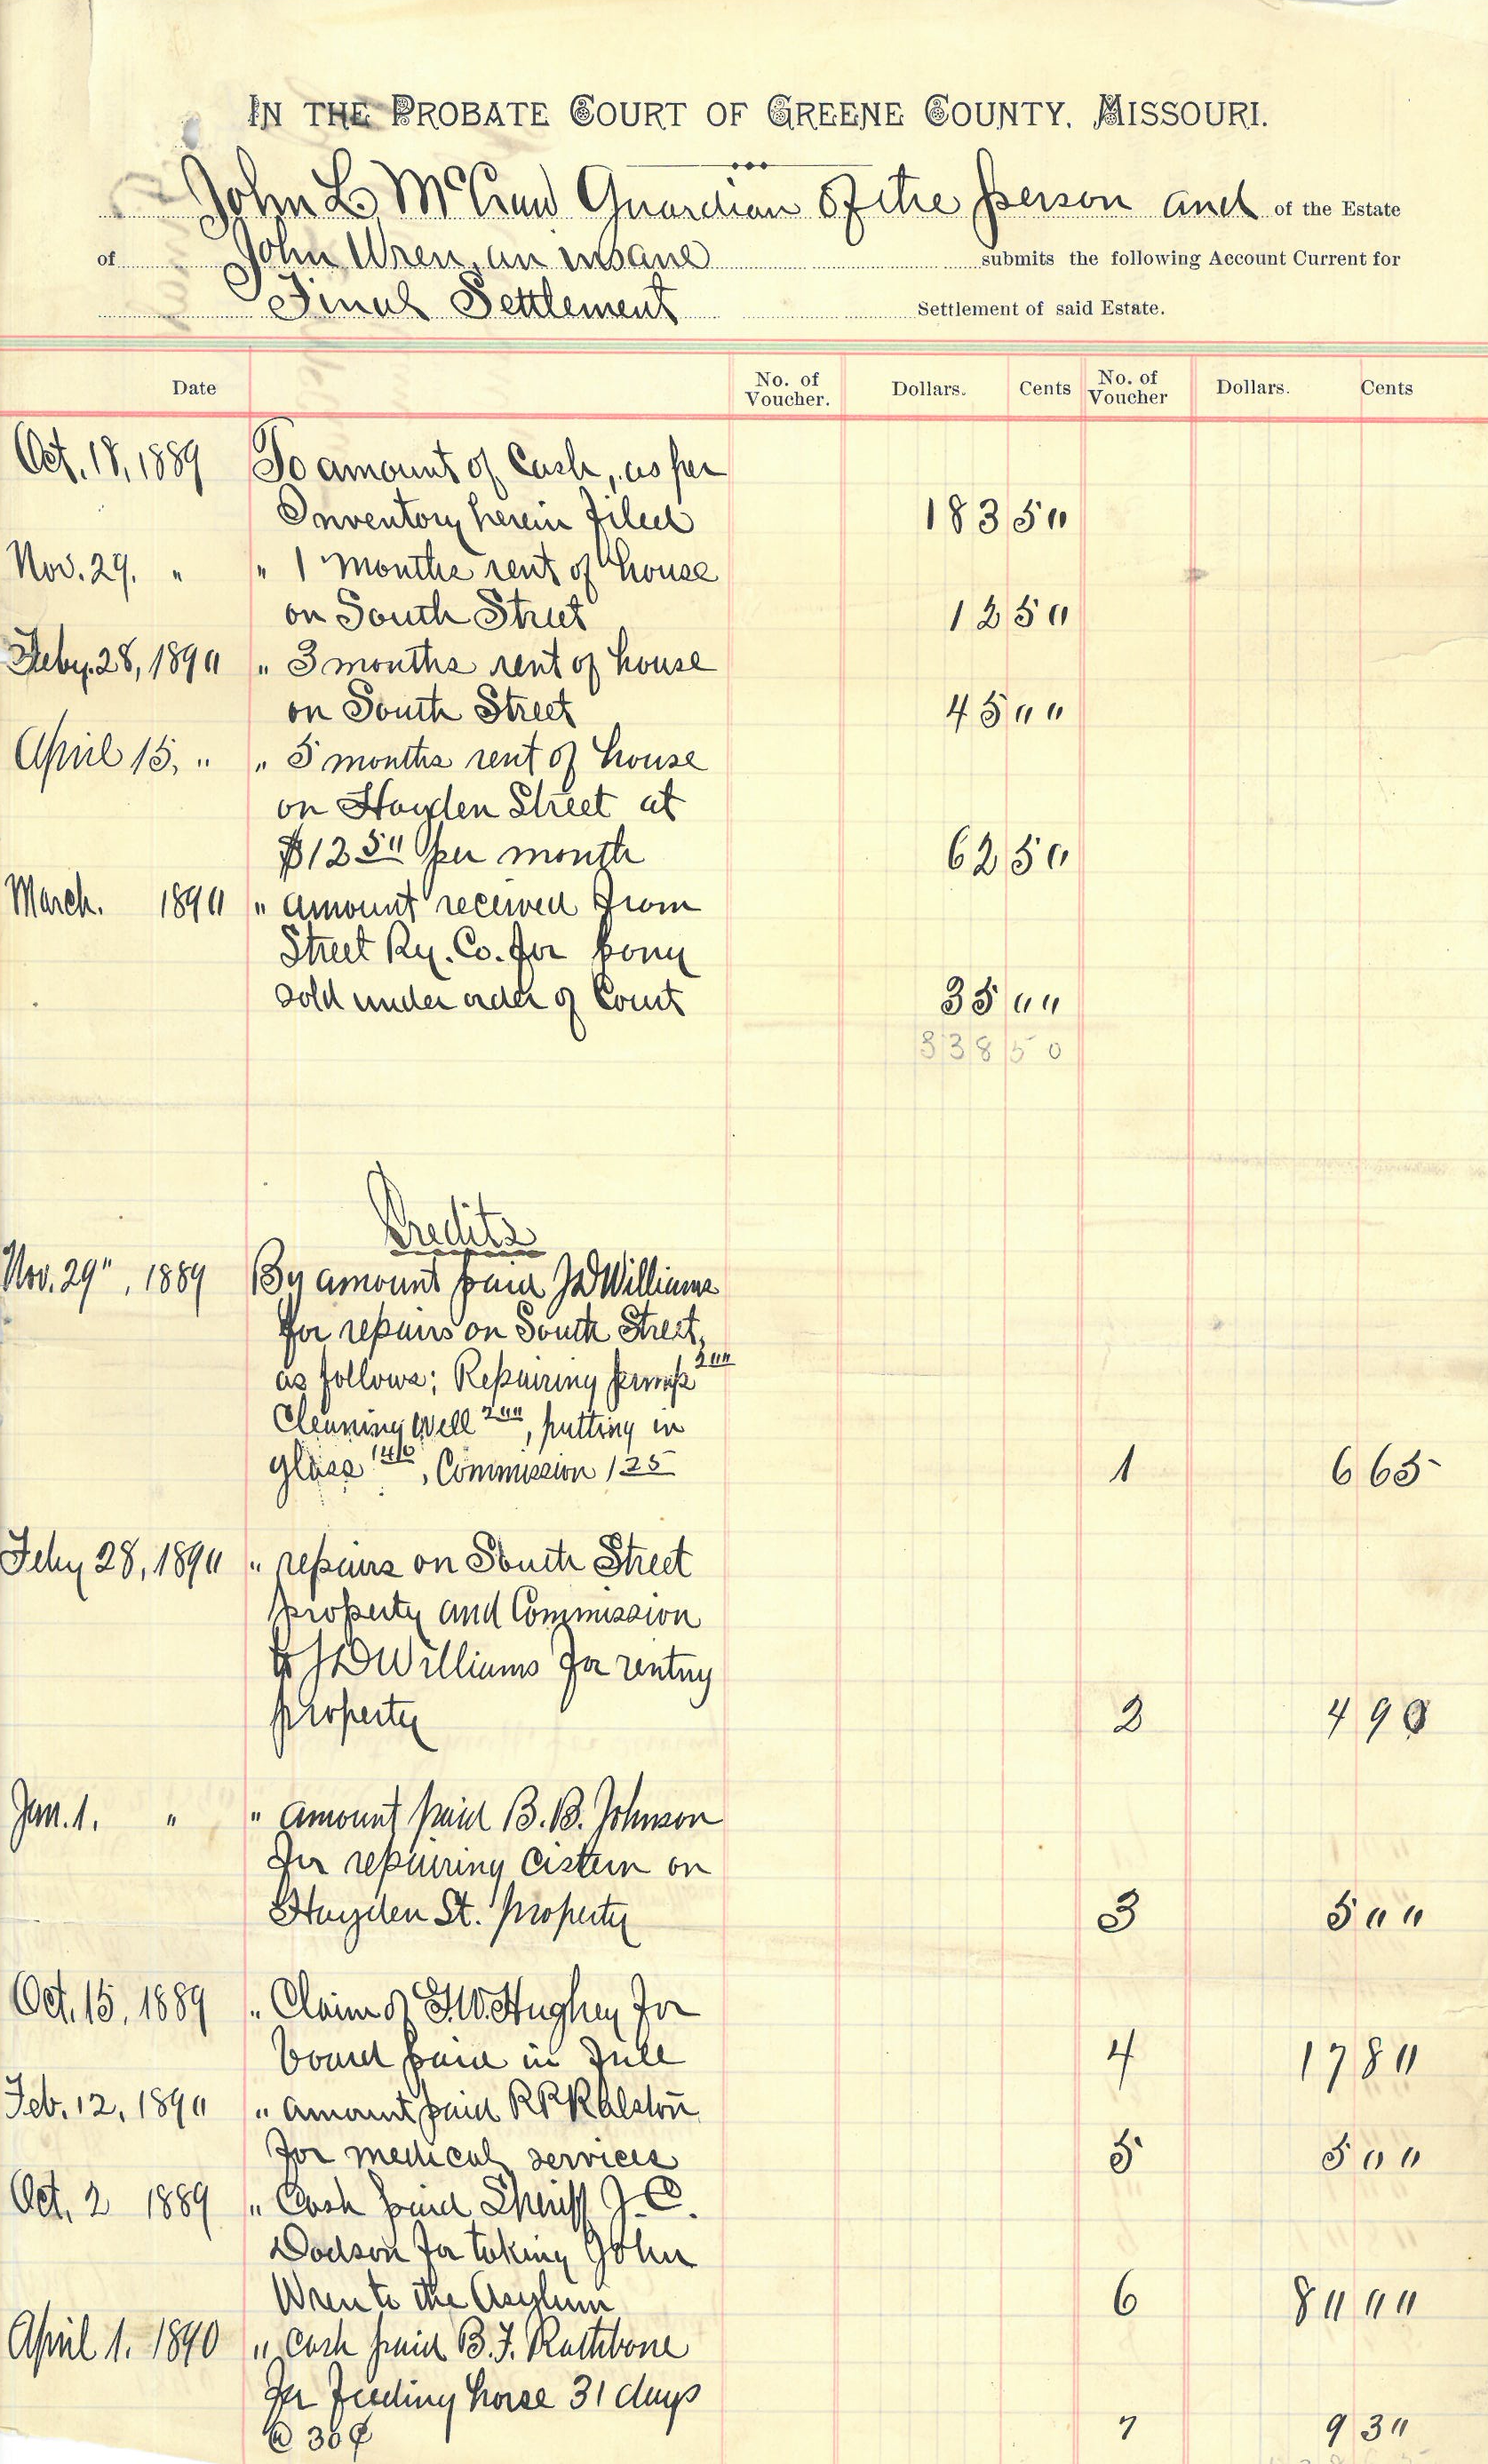 IN THE PROBATE COURT OF GREENE COUNTY, MISSOURI.
John L McCraw Guardian of the person and of the Estate
of John Wren, an insane submits the following Account Current for
Final Settlement Settlement of said Estate.
Date No. of Voucher. Dollars. Cents No. of Voucher Dollars. Cents
Oct. 18, 1889 To amount of Cash, as per
Inventory herein filed 183 50
Nov. 29. " " 1 months rent of house
on South Street 12 50
Feby. 28, 1890 " 3 months rent of house
on South Street 45 00
April 15, " " 5 months rent of house
on Hayden Street at
$12 50 per month 62 50
March. 1890 " amount received from
Street Ry. Co. for pony
sold under order of Court 35 00
338 50
Credits
Nov. 29", 1889 By amount paid J D Williams
for repairs on South Street,
as follows; Repairing pump 2 00
Cleaning well 2 00, putting in
glass 1 40, Commission 1 25 1 6 65
Feby 28, 1890 " repairs on South Street
property and Commission
to J D Williams for renting
property 2 4 90
Jan. 1. " " amount paid B. B. Johnson
for repairing cistern on
Hayden St. property 3 5 00
Oct. 15, 1889 " Claim of G. W. Hughey for
board paid in full 4 17 80
Feb. 12, 1890 " amount paid R P Ralston
for medical services 5 5 00
Oct. 2 1889 " Cash paid Sheriff J. C.
Dodson for taking John
Wren to the Asylum 6 80 00
April 1. 1890 " cash paid B. F. Rathbone
for feeding horse 31 days
@ 30¢ 7 9 30